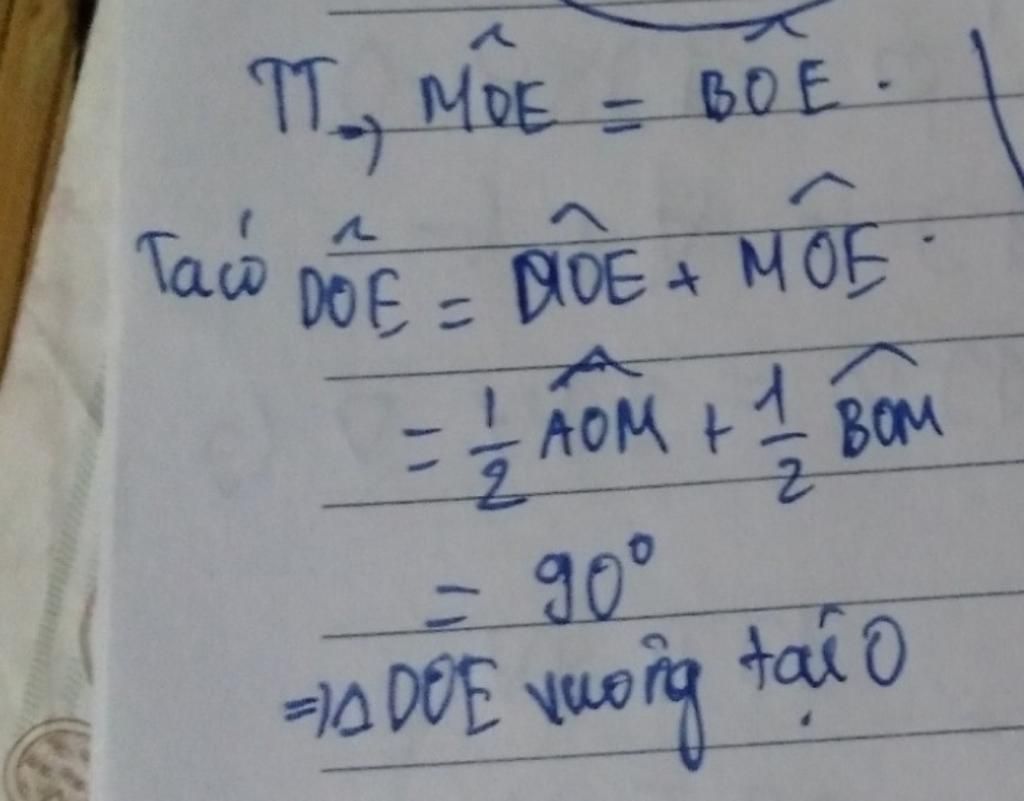 TT → M̂OE = B̂OE .
Ta có D̂OE = D̂IOE + M̂OE .
= 1/2 ÂOM + 1/2 B̂OM
= 90°
⇒ Δ DOE vuông tại O